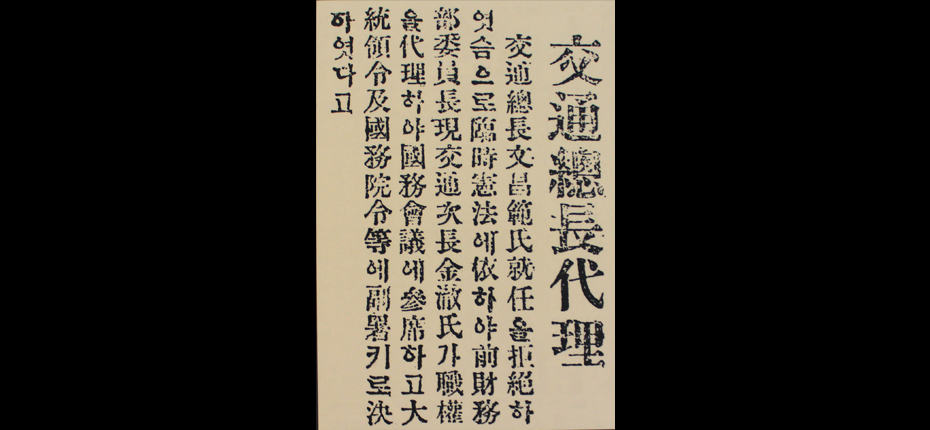 交通總長代理
交通總長文昌範氏就任을拒絶하
엿슴으로臨時憲法에依하야前財務
部委員長現交通次長金澈氏가職權
을代理하야國務會議에參席하고大
統領令及國務院令等에副署키로決
하엿다고